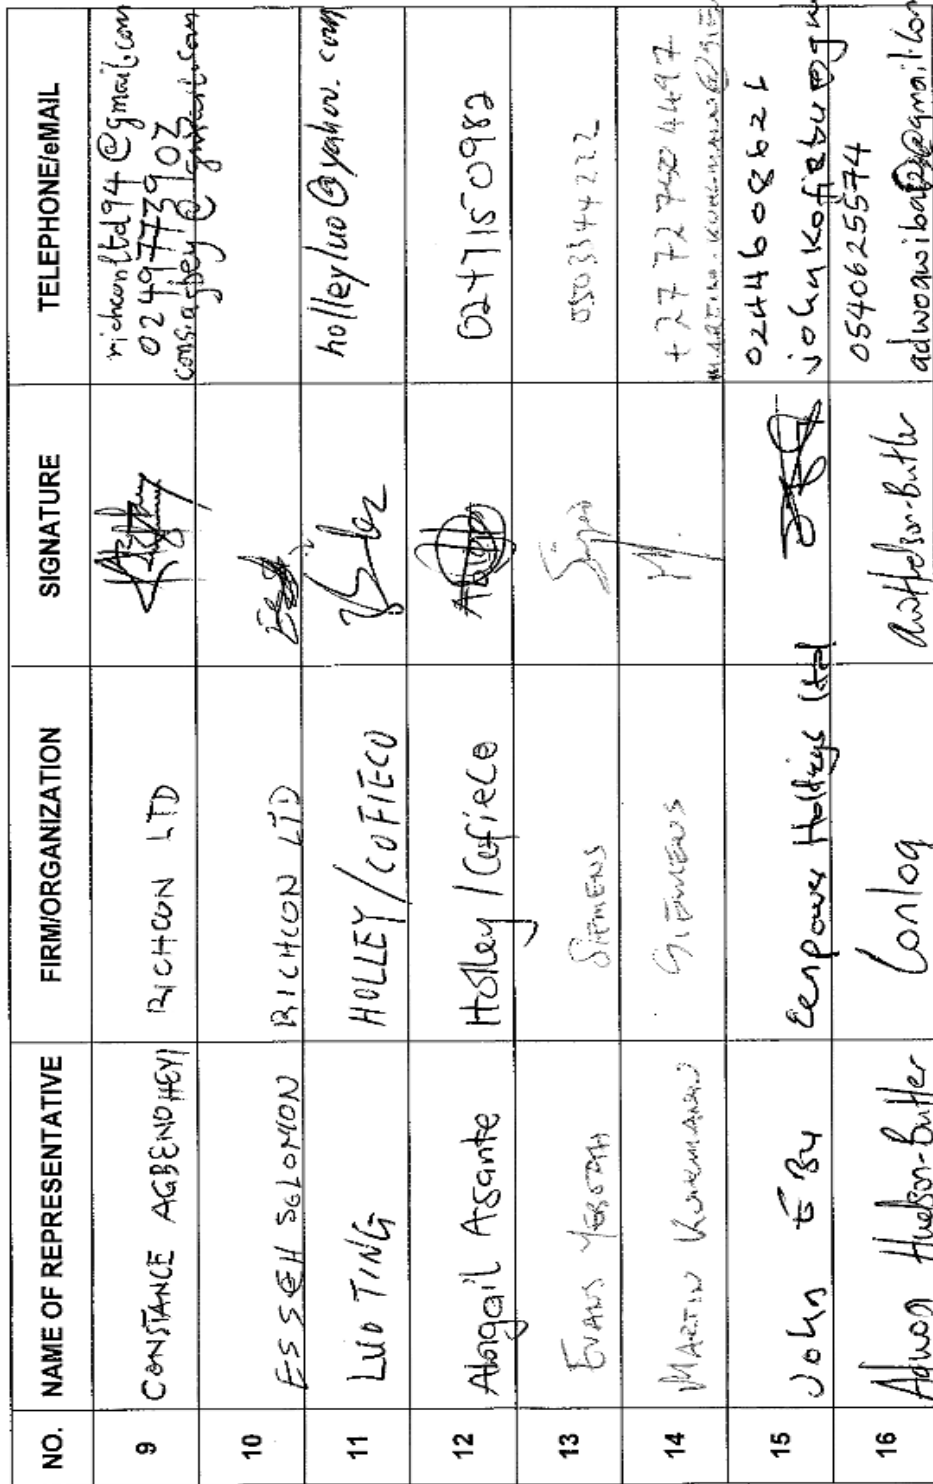 NO. NAME OF REPRESENTATIVE FIRM/ORGANIZATION SIGNATURE TELEPHONE/eMAIL
9 CONSTANCE AGBENOHEYI RICHCON LTD richconltd94@gmail.com
0249773903
10 ESSEH SOLOMON RICHCON LTD
11 LUO TING HOLLEY/COFIECO holleyluo@yahoo.com
12 Abigail Asante Holley/Cofieco 0247150982
13 EVANS YEBOAH SIEMENS 0503344222
14 MARTIN SIEMENS +27 72 750 4497
15 John Enpower Holdings Ltd 0244608621
16 Adwoa Hudson-Butler Conlog 0540625574